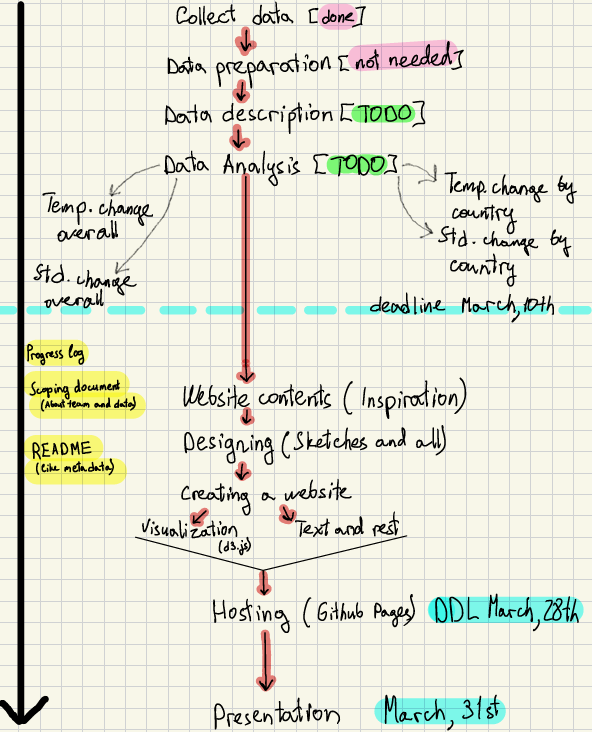 Collect data [done]
Data preparation [not needed]
Data description [TODO]
Data Analysis [TODO]
Temp. change
overall
Std. change
overall
Temp. change by
country
Std. change by
country
deadline March, 10th
Progress log
Scoping document
(About team and data)
README
(like metadata)
Website contents (Inspiration)
Designing (Sketches and all)
Creating a website
Visualization
(d3.js)
Text and rest
Hosting (Github Pages) DDL March, 28th
Presentation March, 31st